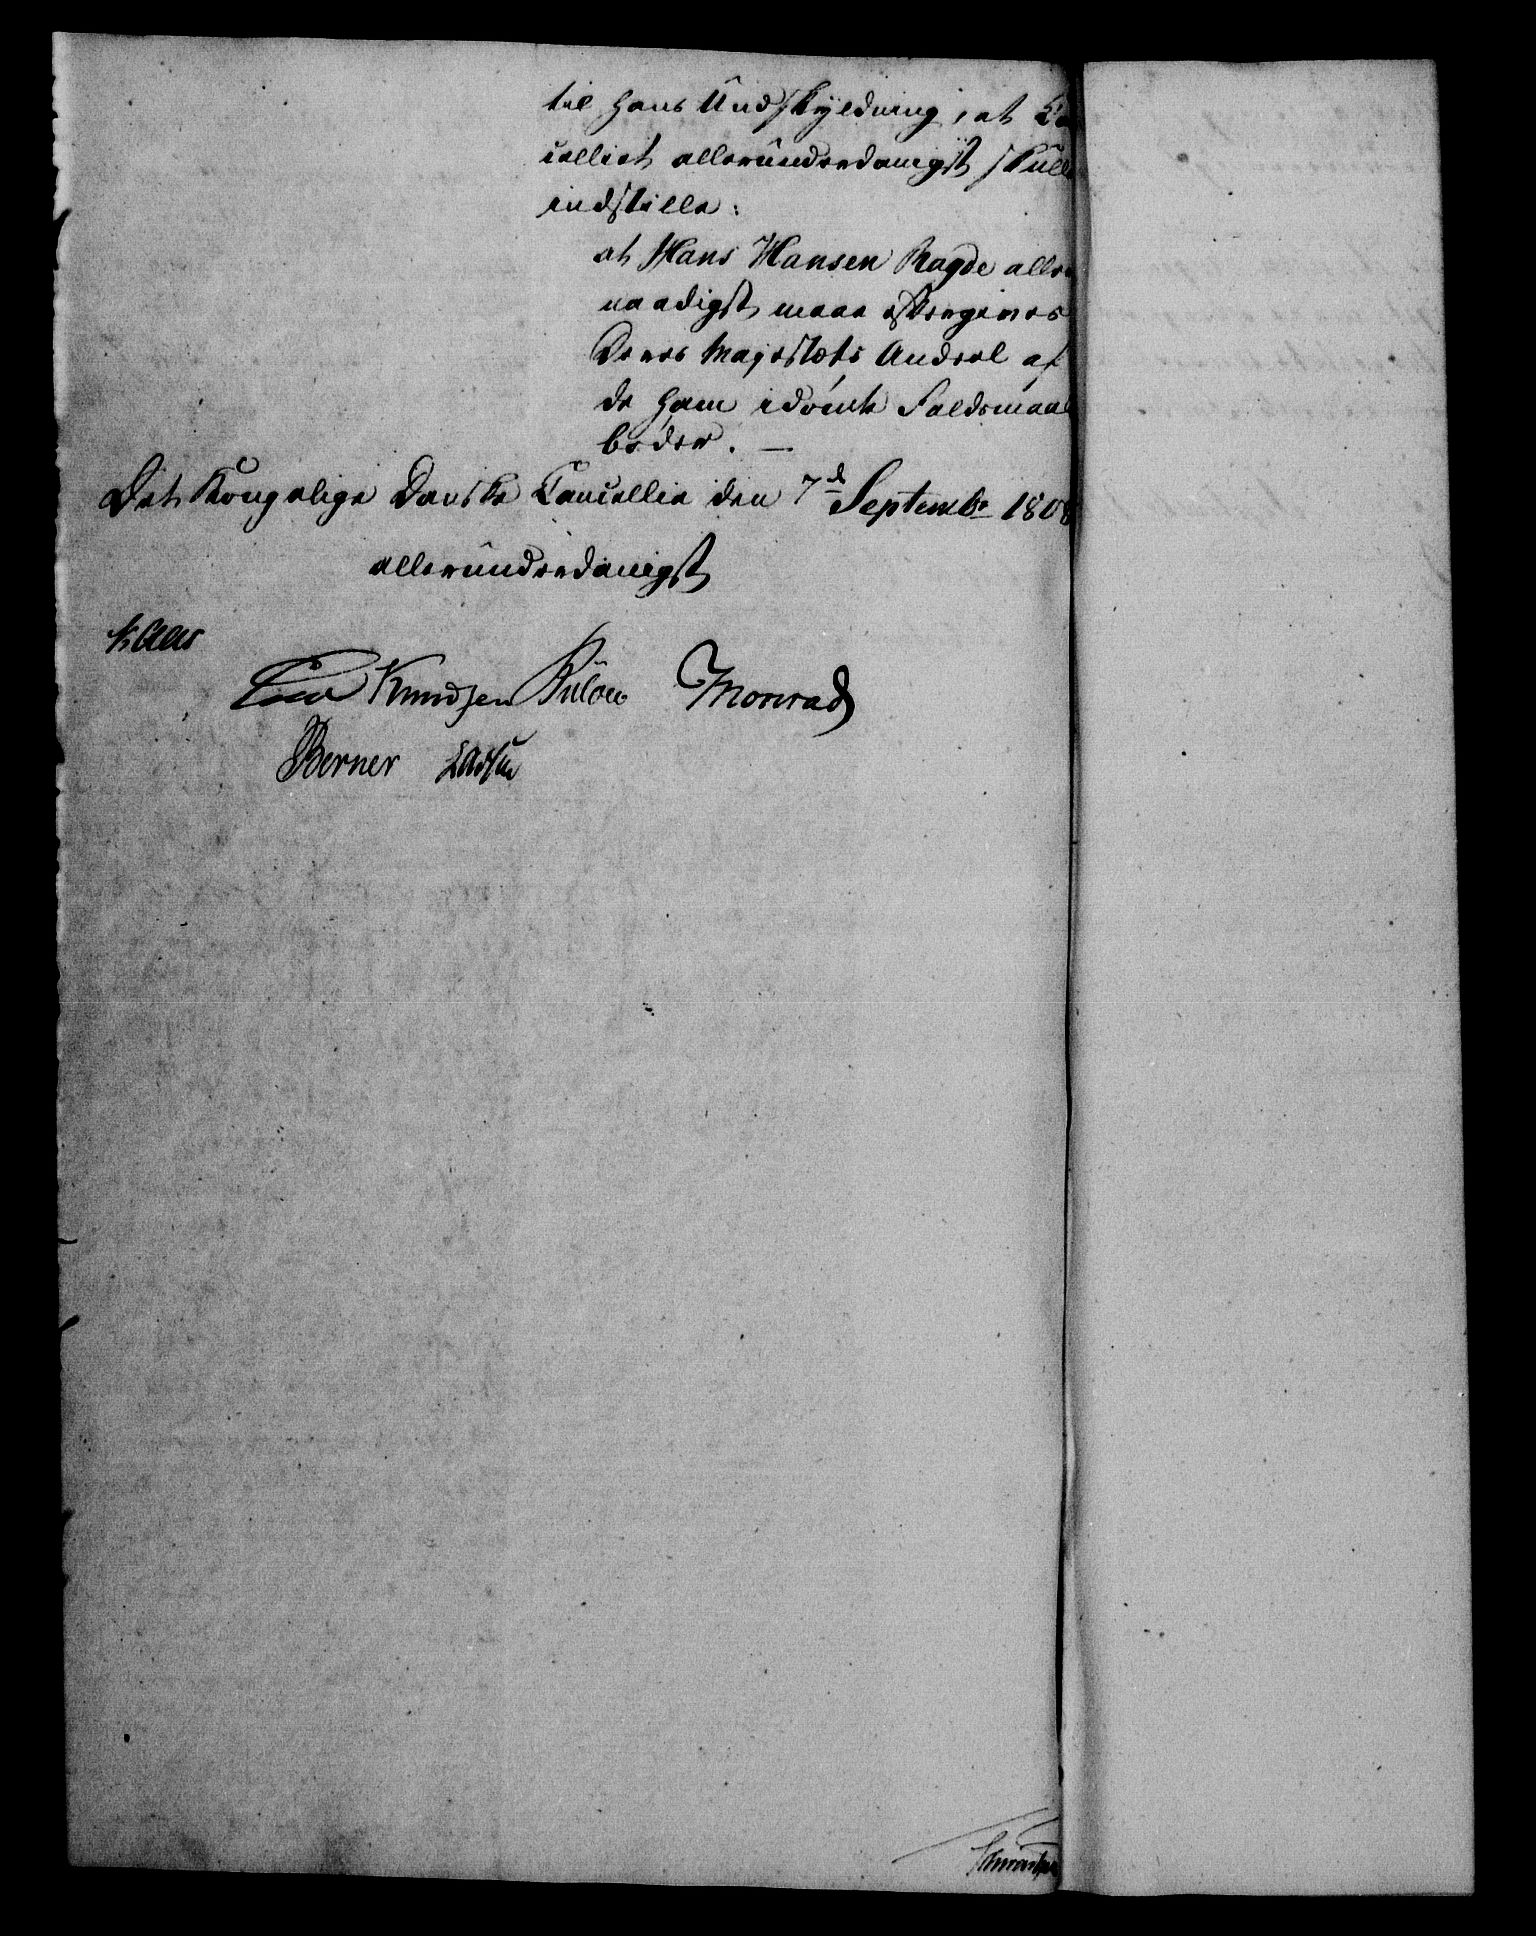 til hans Undskyldning, at Ca
celliet allerunderdanigst skull
indstille:
at Hans Hansen Ragde aller
naadigst maae eftergives
Deres Majestæts Andeel af
de ham idömte Faldsmaal
böder. —
Det Kongelige Danske Cancellie den 7d Septembr 1808
allerunderdanigst
Kaas
Knudsen Bülow Monrad
Berner Lassen